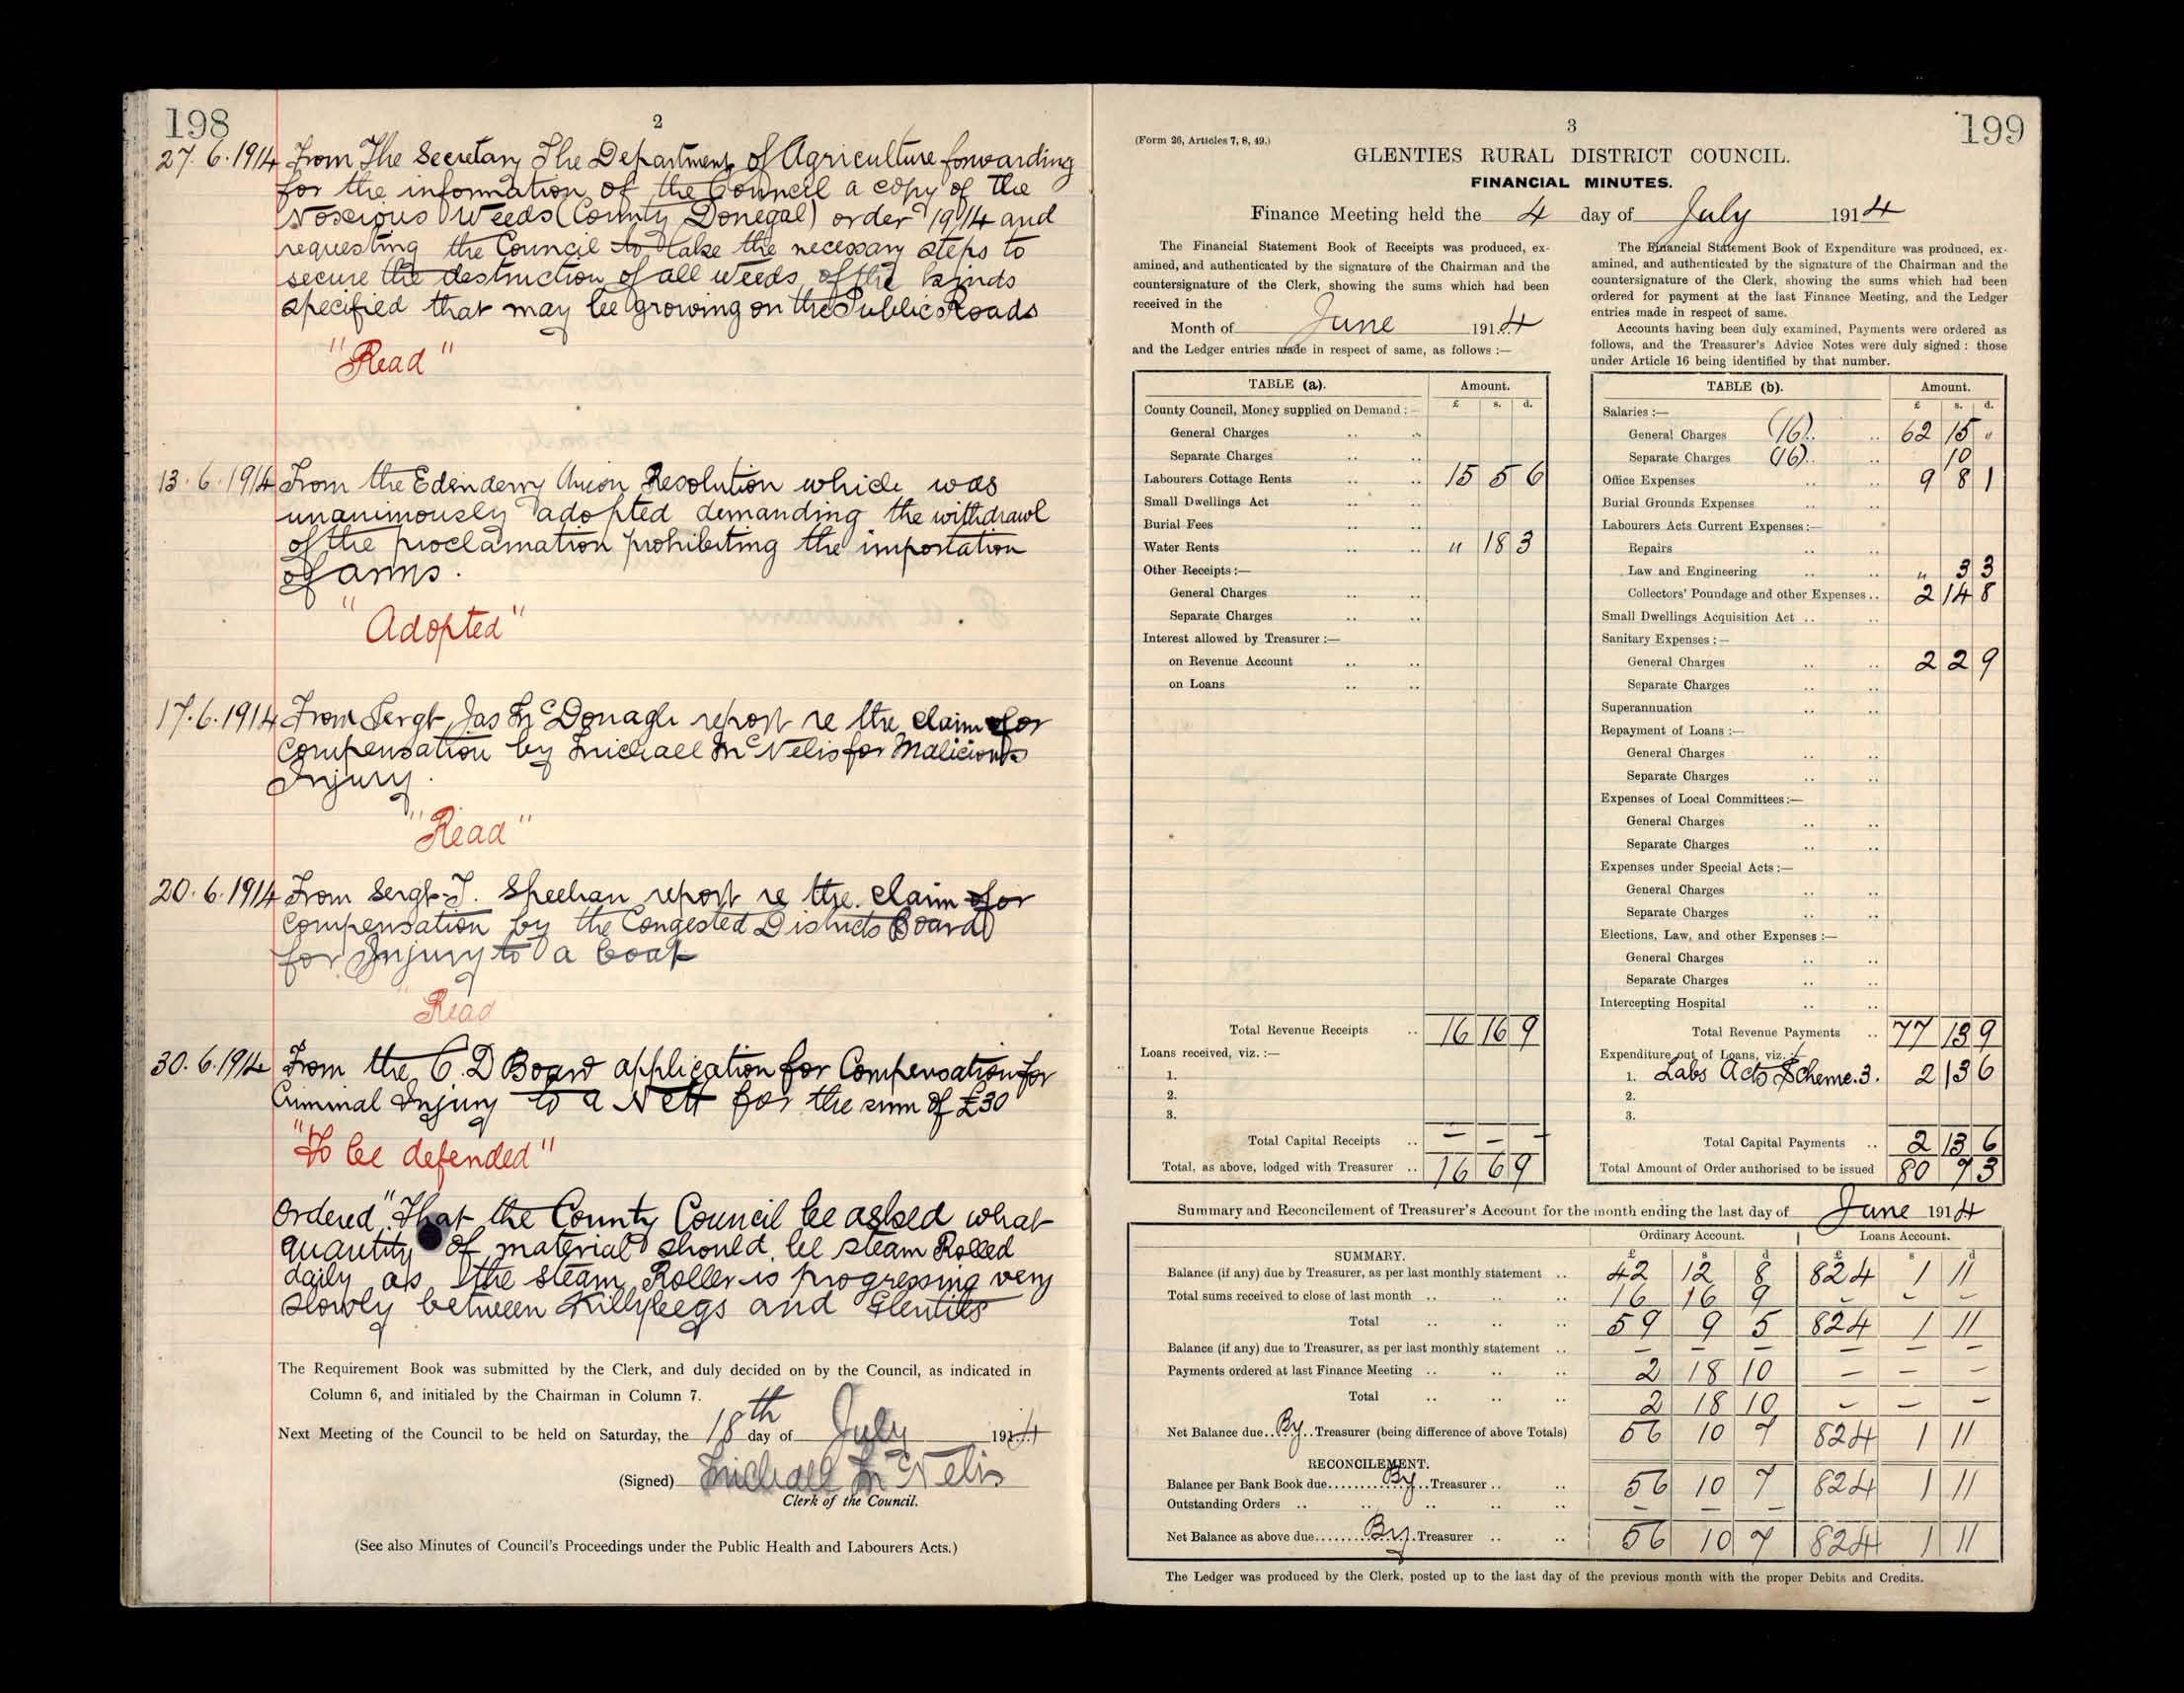 198
2
27.6.1914 From The Secretary The Department of Agriculture forwarding
for the information of the Council a copy of the
Noscious Weeds (County Donegal) order 1914 and
requesting the Council to take the necessary steps to
secure the destruction of all weeds of the kinds
specified that may be growing on the Public Roads
"Read"
13.6.1914 From the Edenderry Union Resolution which was
unanimously adopted demanding the withdrawl
of the proclamation prohibiting the importation
of arms.
"Adopted"
17.6.1914 From Sergt Jas McDonagh report re the claim for
compensation by Michael McNelis for Malicious
Injury.
"Read"
20.6.1914 From Sergt J. Sheehan report re the claim for
compensation by the Congested Districts Board
for Injury to a boat
"Read
30.6.1914 From the C. D Board application for Compensation for
Criminal Injury to a Nett for the sum of £30
"To be defended"
Ordered "That the County Council be asked what
quantity of material should be steam Rolled
daily as the steam Roller is progressing very
slowly between Killybegs and Glenties
The Requirement Book was submitted by the Clerk, and duly decided on by the Council, as indicated in
Column 6, and initialed by the Chairman in Column 7.
Next Meeting of the Council to be held on Saturday, the 18th day of July 1914
(Signed) Michael McNelis
Clerk of the Council.
(See also Minutes of Council's Proceedings under the Public Health and Labourers Acts.)
199
3
(Form 26, Articles 7, 8, 49.)
GLENTIES RURAL DISTRICT COUNCIL.
FINANCIAL MINUTES.
Finance Meeting held the 4 day of July 1914
The Financial Statement Book of Receipts was produced, ex-
amined, and authenticated by the signature of the Chairman and the
countersignature of the Clerk, showing the sums which had been
received in the
Month of June 1914
and the Ledger entries made in respect of same, as follows :—
TABLE (a). Amount.
£ s. d.
County Council, Money supplied on Demand :—
General Charges .. ..
Separate Charges .. ..
Labourers Cottage Rents .. .. 15 5 6
Small Dwellings Act .. ..
Burial Fees .. ..
Water Rents .. .. " 18 3
Other Receipts :—
General Charges .. ..
Separate Charges .. ..
Interest allowed by Treasurer :—
on Revenue Account .. ..
on Loans .. ..
Total Revenue Receipts .. 16 16 9
Loans received, viz. :—
1.
2.
3.
Total Capital Receipts .. — — —
Total, as above, lodged with Treasurer .. 16 6 9
The Financial Statement Book of Expenditure was produced, ex-
amined, and authenticated by the signature of the Chairman and the
countersignature of the Clerk, showing the sums which had been
ordered for payment at the last Finance Meeting, and the Ledger
entries made in respect of same.
Accounts having been duly examined, Payments were ordered as
follows, and the Treasurer's Advice Notes were duly signed : those
under Article 16 being identified by that number.
TABLE (b). Amount.
£ s. d.
Salaries :—
General Charges (16).. .. 62 15 "
Separate Charges (16).. .. 10
Office Expenses .. .. 9 8 1
Burial Grounds Expenses .. ..
Labourers Acts Current Expenses :—
Repairs .. ..
Law and Engineering .. .. " 3 3
Collectors' Poundage and other Expenses .. 2 14 8
Small Dwellings Acquisition Act .. ..
Sanitary Expenses :—
General Charges .. .. 2 2 9
Separate Charges .. ..
Superannuation .. ..
Repayment of Loans :—
General Charges .. ..
Separate Charges .. ..
Expenses of Local Committees :—
General Charges .. ..
Separate Charges .. ..
Expenses under Special Acts :—
General Charges .. ..
Separate Charges .. ..
Elections, Law, and other Expenses :—
General Charges .. ..
Separate Charges .. ..
Intercepting Hospital .. ..
Total Revenue Payments .. 77 13 9
Expenditure out of Loans, viz. :—
1. Labs Acts Scheme. 3. 2 13 6
2.
3.
Total Capital Payments .. 2 13 6
Total Amount of Order authorised to be issued 80 7 3
Summary and Reconcilement of Treasurer's Account for the month ending the last day of June 1914
Ordinary Account. Loans Account.
SUMMARY. £ s d £ s d
Balance (if any) due by Treasurer, as per last monthly statement .. 42 12 8 824 1 11
Total sums received to close of last month .. .. .. 16 16 9 — — —
Total .. .. .. 59 9 5 824 1 11
Balance (if any) due to Treasurer, as per last monthly statement .. — — — — — —
Payments ordered at last Finance Meeting .. .. .. 2 18 10 — — —
Total .. .. .. 2 18 10 — — —
Net Balance due..By..Treasurer (being difference of above Totals) 56 10 7 824 1 11
RECONCILEMENT.
Balance per Bank Book due..........By..Treasurer .. .. 56 10 7 824 1 11
Outstanding Orders .. .. .. .. — — —
Net Balance as above due........By.Treasurer .. .. 56 10 7 824 1 11
The Ledger was produced by the Clerk, posted up to the last day of the previous month with the proper Debits and Credits.